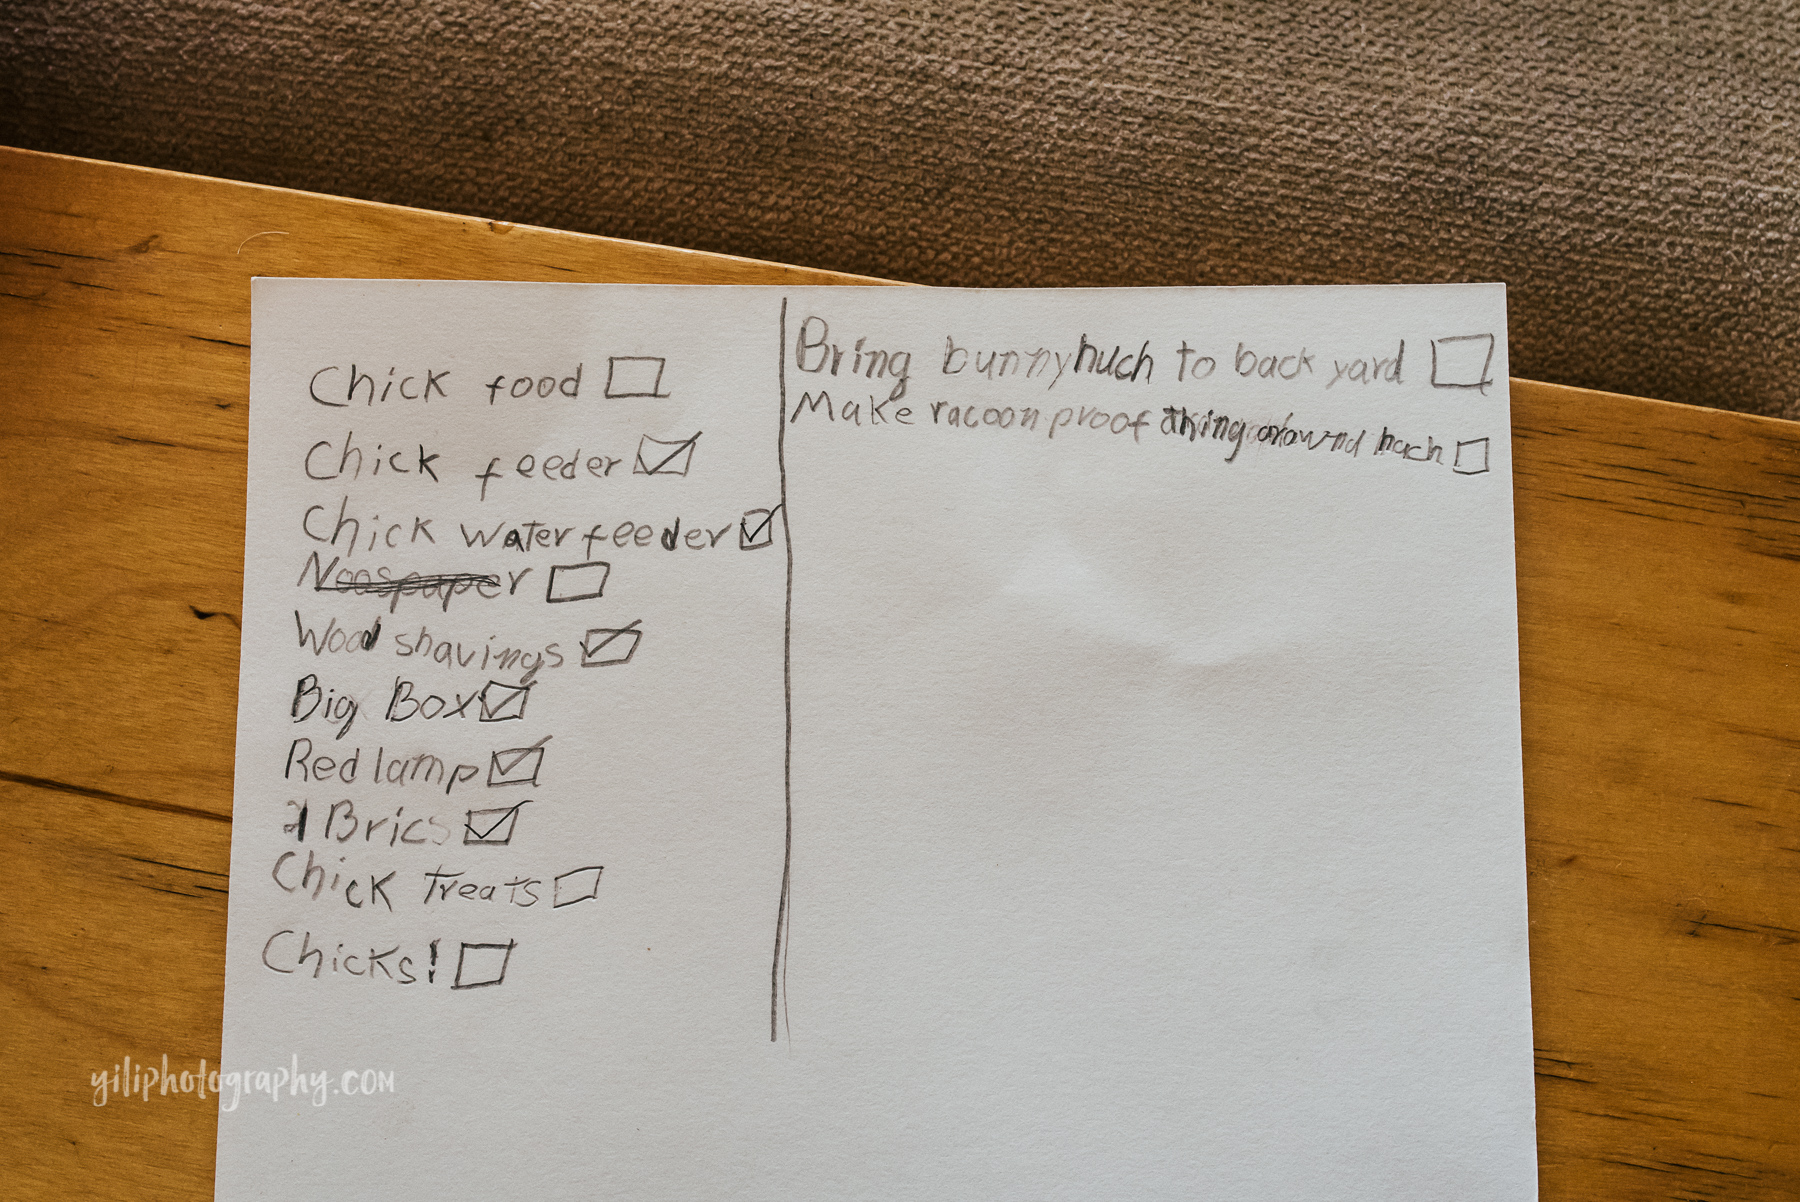 Chick food
Chick feeder
Chick water feeder
Noospaper
Wood shavings
Big Box
Red lamp
Brics
Chick treats
Chicks!
Bring bunny huch to back yard
Make racoon proof thing around huch
yiliphotography.com